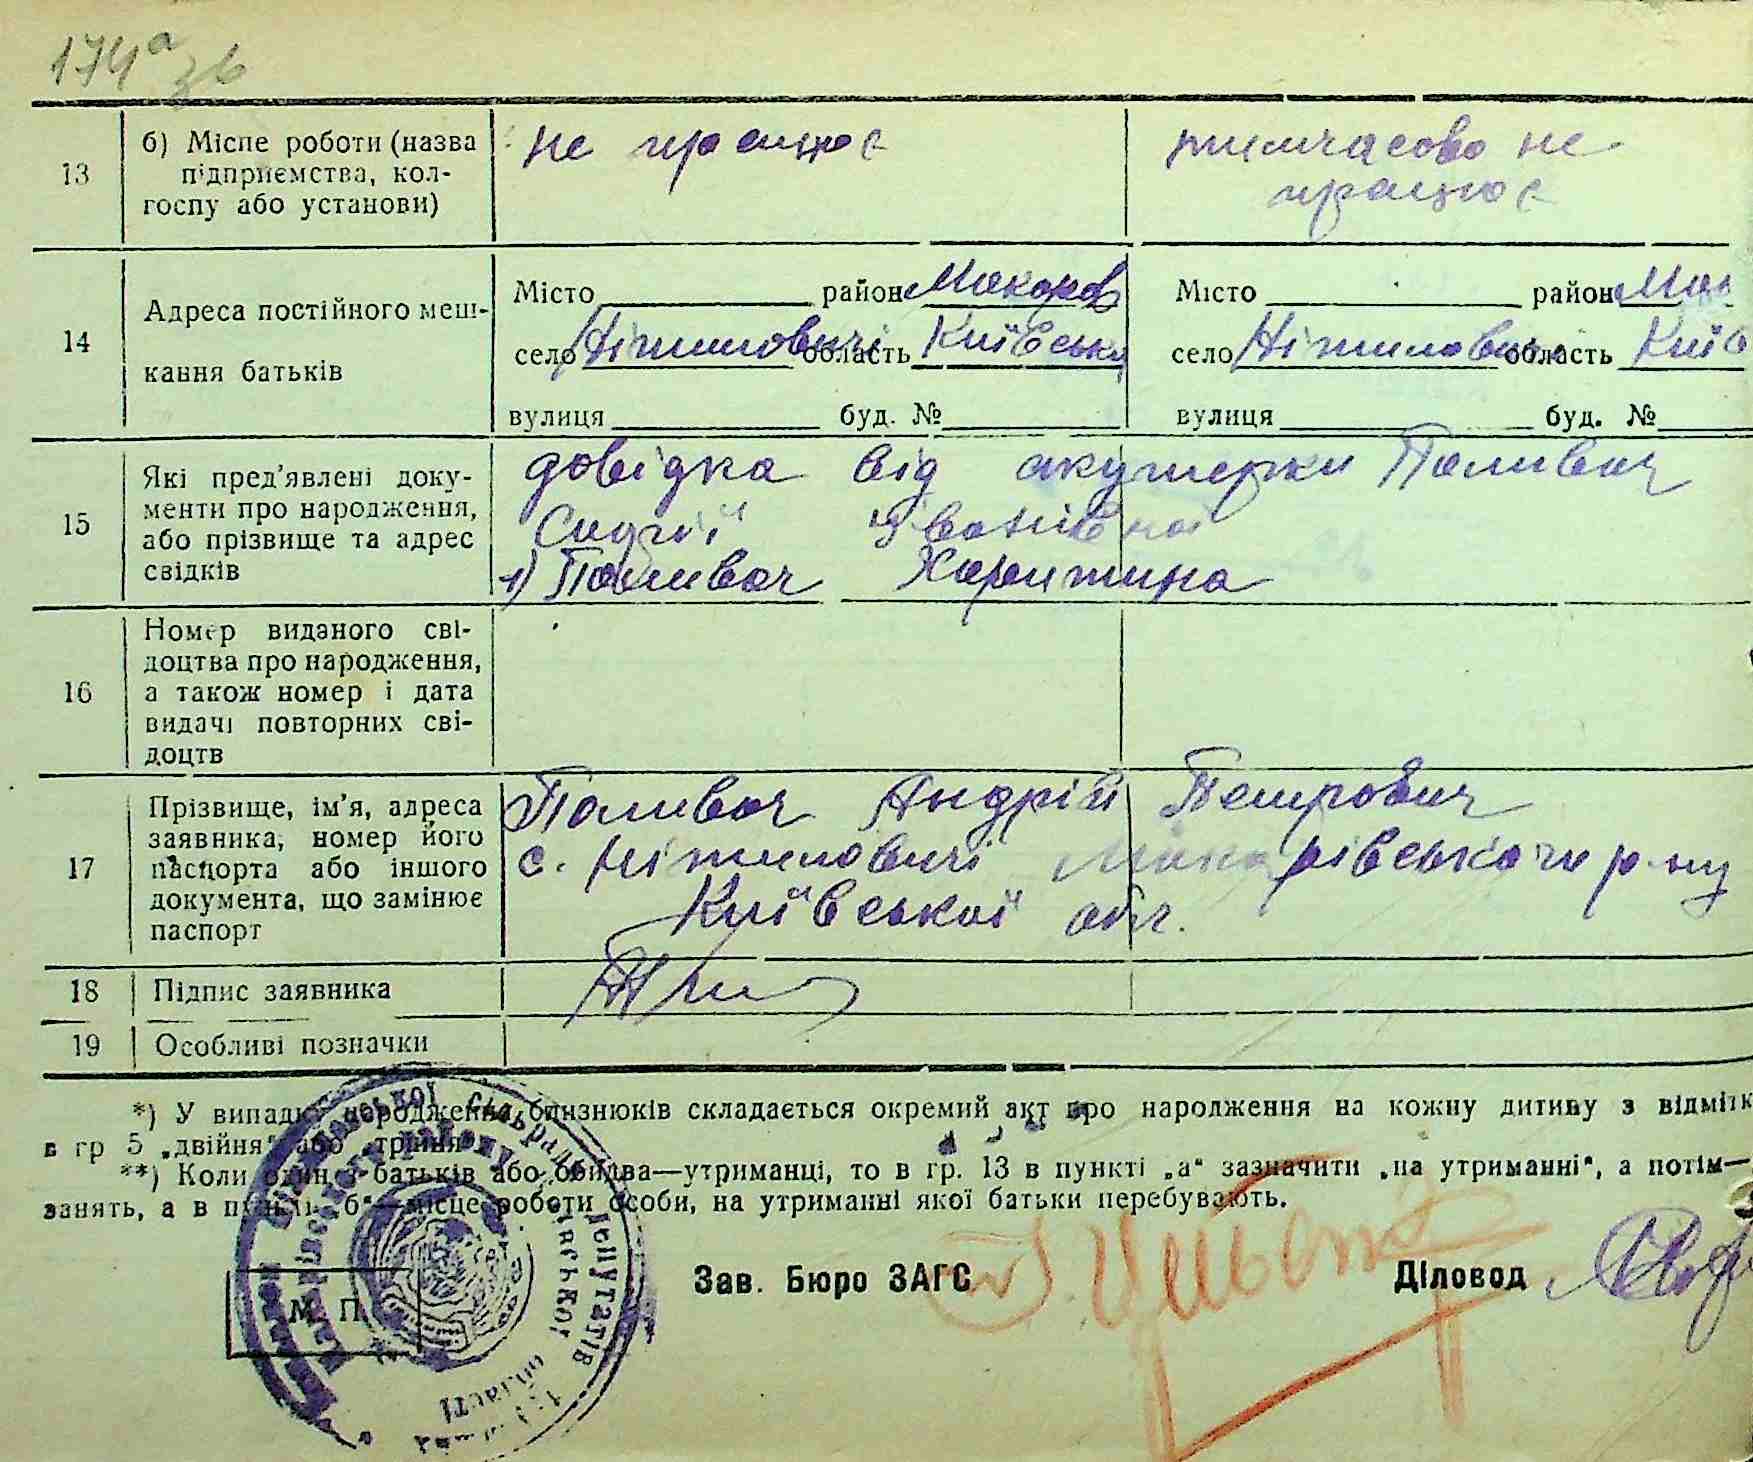 174а зв
13
б) Місце роботи (назва
підприємства, кол-
госпу або установи)
не працює
тимчасово не
працює
14
Адреса постійного меш-
кання батьків
Місто район Макаров
село Ніжиловичі область Київська
вулиця буд. №
Місто район Мак
село Ніжиловичі область Київ
вулиця буд. №
15
Які пред'явлені доку-
менти про народження,
або прізвище та адрес
свідків
довідка від акушерки Поливач
Софії Іванівної
1) Поливач Харитина
16
Номер виданого сві-
доцтва про народження,
а також номер і дата
видачі повторних сві-
доцтв
17
Прізвище, ім'я, адреса
заявника, номер його
паспорта або іншого
документа, що замінює
паспорт
Поливач Андрій Петрович
с. Ніжиловичі Макарівського р-ну
Київської обл.
18
Підпис заявника
19
Особливі позначки
*) У випадку народження близнюків складається окремий акт про народження на кожну дитину з відмітк
в гр 5 „двійня“ або „трійня“.
**) Коли один з батьків або обидва—утриманці, то в гр. 13 в пункті „а“ зазначити „на утриманні“, а потім—
занять, а в пункті „б“—місце роботи особи, на утриманні якої батьки перебувають.
Зав. Бюро ЗАГС
Діловод
М П
сільради
депутатів
області